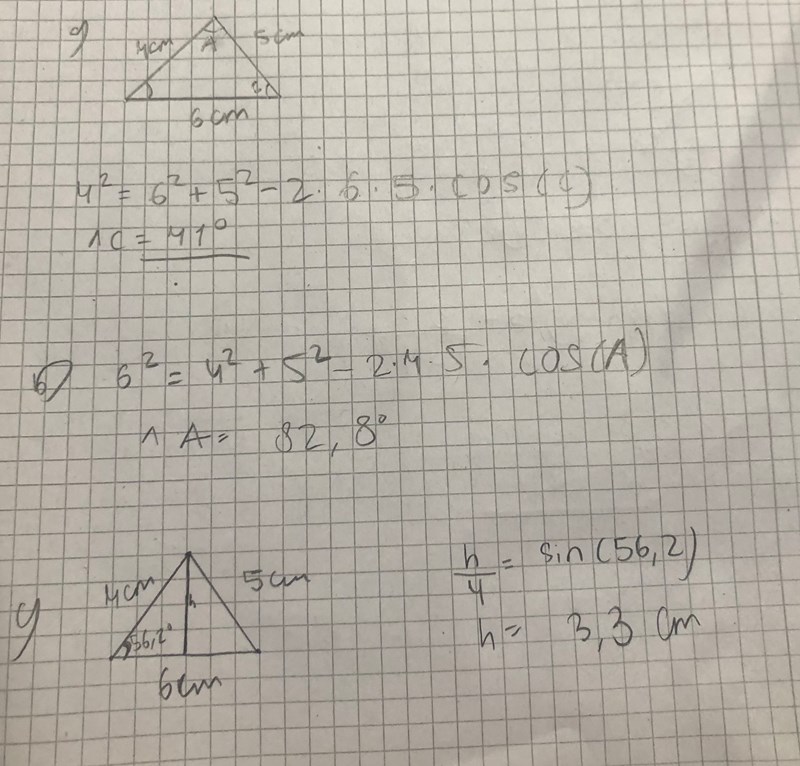 a)
4cm
A
5cm
6cm
4² = 6² + 5² - 2 · 6 · 5 · cos(C)
∧C = 41°
b) 6² = 4² + 5² - 2·4·5· cos(A)
∧A = 82,8°
c)
4cm
h
5cm
56,2°
6cm
h/4 = sin(56,2)
h = 3,3 cm